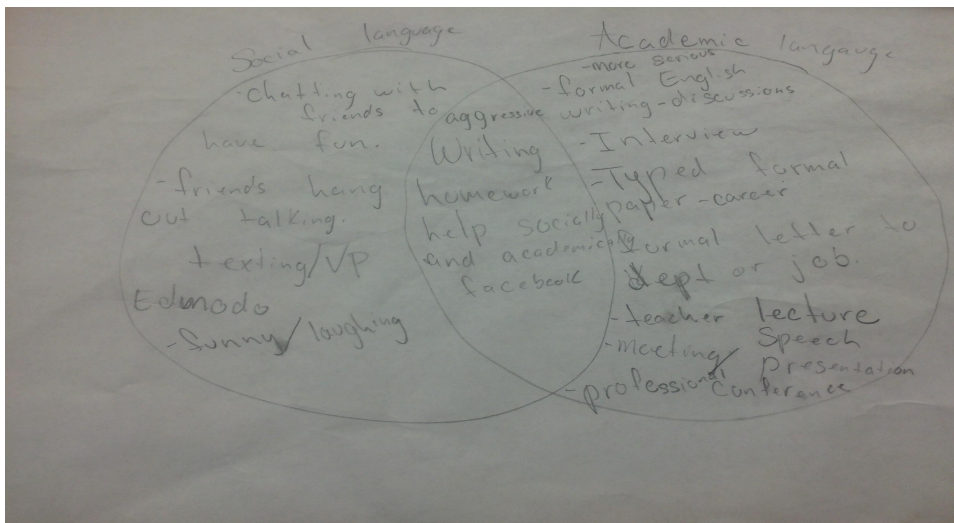 Social language
-chatting with
friends to
have fun.
-friends hang
out talking.
texting/VP
Edmodo
-funny/laughing
aggressive
Writing
homework
help socially
and academically
facebook
Academic langauge
-more serious
-formal English
writing-discussions
-Interview
-Typed formal
paper-career
-formal letter to
dept or job.
-teacher lecture
-meeting/ Speech
Presentation
-professional conference